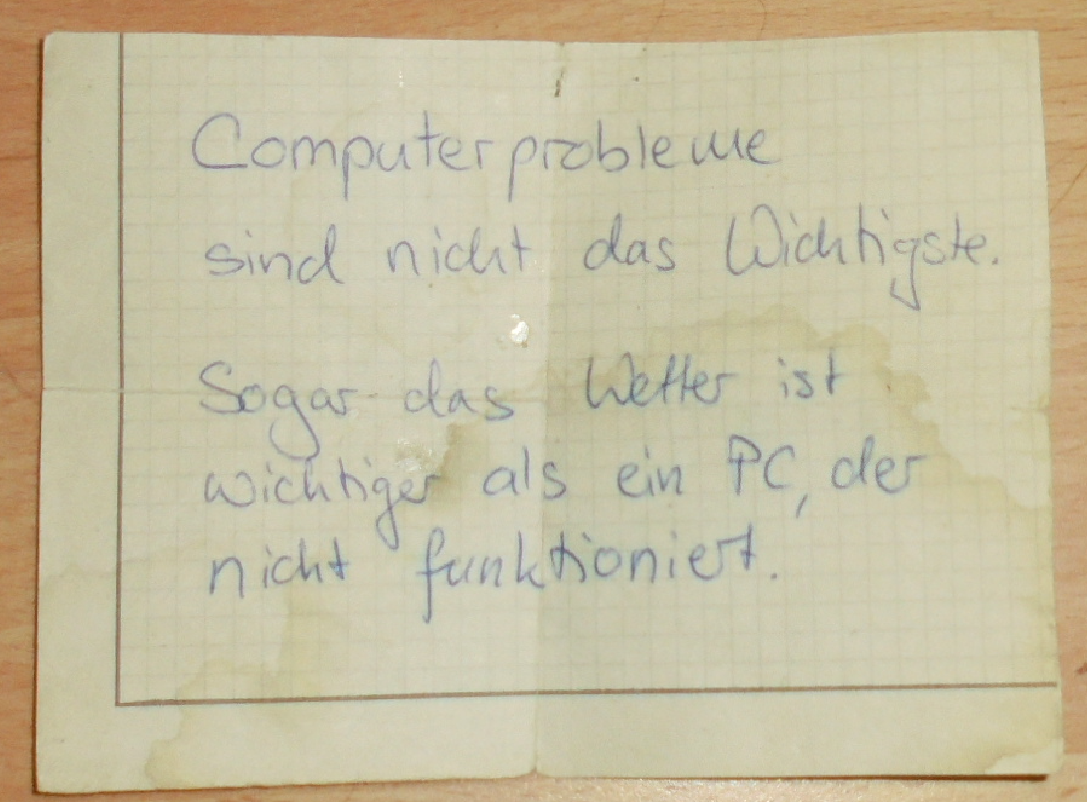 Computerprobleme
sind nicht das Wichtigste.
Sogar das Wetter ist
wichtiger als ein PC, der
nicht funktioniert.